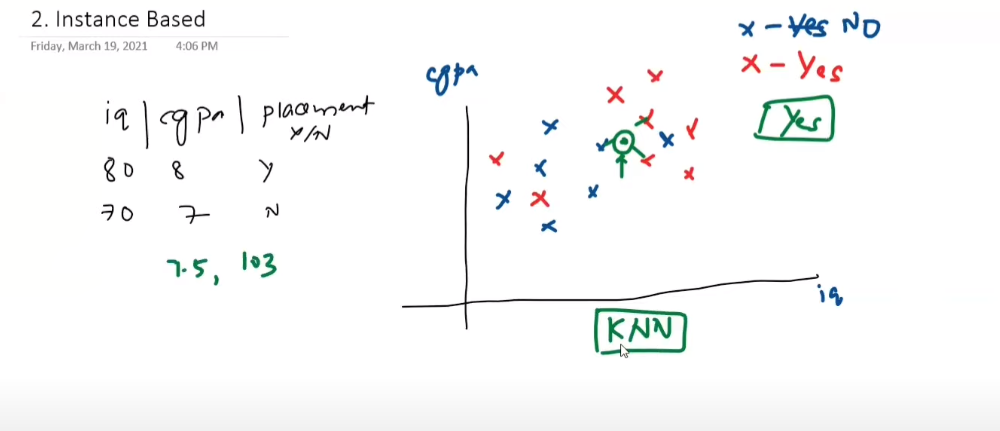 2. Instance Based
Friday, March 19, 2021 4:06 PM
iq | cgpa | placement
Y/N
80 8 Y
70 7 N
7.5, 103
cgpa
x - Yes NO
x - Yes
Yes
iq
KNN